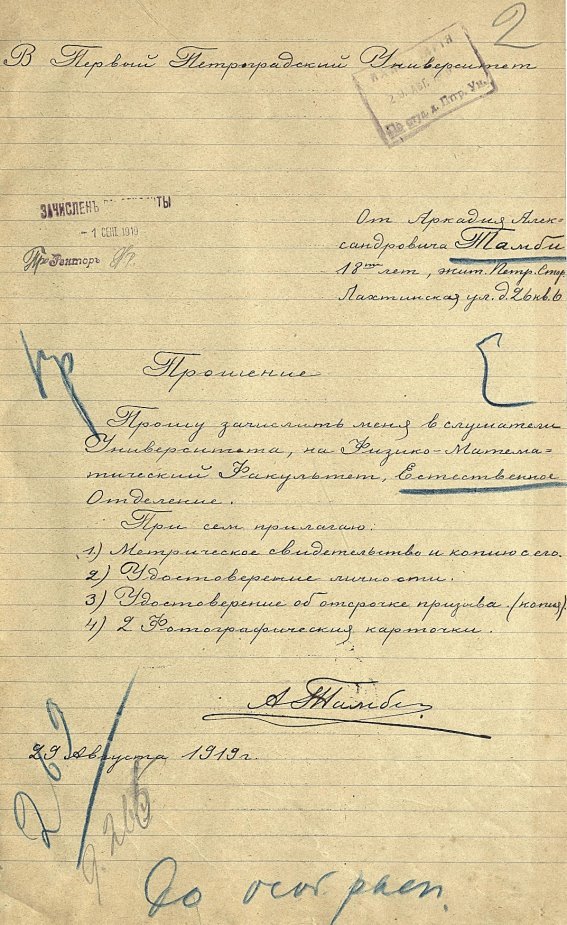 2
В Первый Петроградский Университет
КАНЦЕЛЯРІЯ
29 АВГ.
По студ. д. Птр. Ун.
ЗАЧИСЛЕНЪ СТУДЕНТЫ
- 1 СЕН. 1919
Про Ректоръ
От Аркадия Алек=
сандровича Тамби
18ти лет, жит. Петр. Стор
Лахтинская ул. д. 26 кв. 6
Прошение
Прошу зачислить меня в слушатели
Университета, на Физико-Матема=
тический Факультет, Естественное
Отделение.
При сем прилагаю:
1) Метрическое свидетельство и копию с его.
2) Удостоверение личности.
3) Удостоверение об отсрочке призыва. (копия).
4) 2 Фотографическия карточки.
А Тамби
29 Августа 1919 г.
До особ. расп.